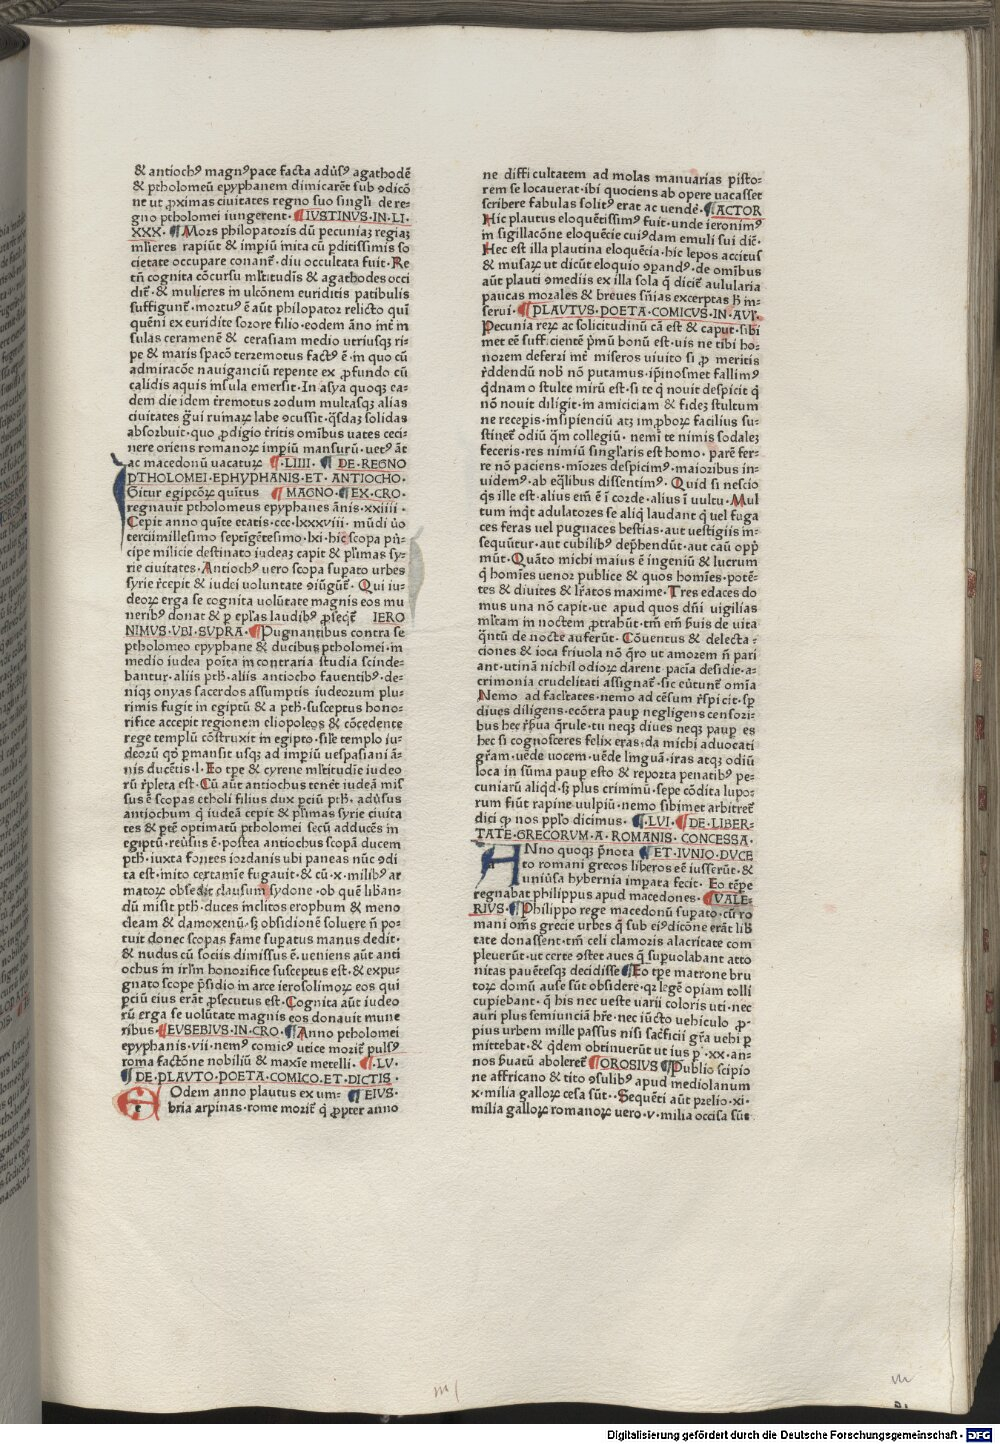 & antiochꝰ magnꝰ pace facta adũsꝰ agathodẽ
& ptholomeũ epyphanem dimicarẽt sub ꝯdicõ
ne ut ꝓximas ciuitates regno suo singłi de re-
gno ptholomei iungerent· IVSTINVS·IN·LI·
XXX· Mors philopatoris dũ pecuniaʒ regiaʒ
młieres rapiũt & impiũ mita cũ ꝑditissimis so
cietate occupare conant̃· diu occultata fuit· Re
tñ cognita cõcursu młtitudĩs & agathodes occi
dit̃· & mulieres in ulcõnem euriditis patibulis
suffigunt̃· mortuꝰ ẽ aũt philopator relicto qui
quẽni ex euridite sorore filio· eodem ãno int̃ in
sulas ceramenẽ & cerasiam medio utriusqʒ ri-
pe & maris spacõ terremotus factꝰ ẽ· in quo cũ
admiracõe nauiganciũ repente ex ꝓfundo cũ
calidis aquis insula emersit· In asya quoqʒ ea-
dem die idem t̃remotus rodum multasqʒ alias
ciuitates g̃ui ruinaꝝ labe ꝯcussit· q̃sdaʒ solidas
absorbuit· quo ꝓdigio t̃ritis omĩbus uates ceci-
nere oriens romanoꝝ impiũ mansurũ· uetꝰ ãt
ac macedonũ uacatuꝝ ·LIIII· DE·REGNO
PTHOLOMEI·EPHYPHANIS·ET·ANTIOCHO·
Igitur egipcõꝝ quĩtus MAGNO· EX·CRO·
regnauit ptholomeus epyphanes ãnis·xxiiii·
Cepit anno quĩte etatis·ccc·lxxxviii· mũdi ũo
terciimillesimo septĩgẽtesimo·lxi·hic scopa pñ-
cipe milicie destinato iudeaʒ capit & płimas sy-
rie ciuitates· Antiochꝰ uero scopa supato urbes
syrie r̃cepit & iudei uoluntate ꝯiũgũt̃· Qui iu-
deoꝝ erga se cognita uolũtate magnis eos mu
neribꝰ donat & p epłas laudibꝰ ꝓseqt̃ IERO
NIMVS·VBI·SVPRA· Pugnantibus contra se
ptholomeo epyphane & ducibus ptholomei· in
medio iudea poĩta in contraria studia scinde-
bantur· aliis ptħ· aliis antiocho fauentibꝰ· de-
niqʒ onyas sacerdos assumptis iudeorum plu-
rimis fugit in egiptũ & a ptħ· susceptus hono-
rifice accepit regionem eliopoleos & cõcedente
rege templũ cõstruxit in egipto· sile templo iu-
deorũ qð pmansit usqʒ ad impiũ uespasiani ã-
nis ducẽtis·l· Eo tp̃e & cyrene młtitudĩe iudeo
rũ r̃pleta est· Cũ aũt antiochus tenẽt iudeã mis
sus ẽ scopas etholi filius dux pciũ ptħ· adũsus
antiochum q̃ iudeã cepit & płimas syrie ciuita
tes & ptẽ optimatũ ptholomei secũ adducẽs in
egiptũ· reũsus ẽ· postea antiochus scopã ducem
ptħ· iuxta fontes iordanis ubi paneas nũc ꝯdi
ta est· mito certamĩe fugauit· & cũ·x·milibꝰ ar
matoꝝ obsedit clausum sydone· ob quẽ liban-
dũ misit ptħ· duces inclitos erophum & meno
cleam & damoxenũ· sʒ obsidionẽ soluere ñ po-
tuit donec scopas fame supatus manus dedit·
& nudus cũ sociis dimissus ẽ· ueniens aũt anti
ochus in irłm honorifice susceptus est· & expu-
gnato scope p̃sidio in arce ierosolimoꝝ eos qui
pciũ eius erãt ꝓsecutus est· Cognita aũt iudeo
rũ erga se uolũtate magnis eos donauit mune
ribus· EVSEBIVS·IN·CRO· Anno ptholomei
epyphanis·vii·nemꝰ comicꝰ utice morit̃ pulsꝰ
roma factõne nobiliũ & maxĩe metelli· ·LV·
DE·PLAVTO·POETA·COMICO·ET·DICTIS·
Eodem anno plautus ex um- EIVS·
bria arpinas·rome morit̃ q̃ ꝓpter anno
ne difficultatem ad molas manuarias pisto-
rem se locauerat· ibi quociens ab opere uacasset
scribere fabulas solitꝰ erat ac uendẽ· ACTOR
Hic plautus eloquẽtissimꝰ fuit· unde ieronimꝰ
in sigillacõne eloquẽcie cuiꝰdam emuli sui dic̃·
Hec est illa plautina eloquẽcia· hic lepos accitus
& musaꝝ ut dicũt eloquio ꝯpandꝰ· de omĩbus
aũt plauti ꝯmediis ex illa sola q̃ dicit̃ aulularia
paucas morales & breues sñias excerptas ħ in-
serui· PLAVTVS·POETA·COMICVS·IN·AVL·
Pecunia reꝝ ac solicitudinũ cã est & caput· sibi
met eẽ sufficientẽ p̃mũ bonũ est· uis ne tibi ho-
norem deferri int̃ miseros uiuito si ꝓ meritis
r̃ddendũ nob̃ nõ putamus· ip̃inosmet fallimꝰ
q̃dnam o stulte mirũ est· si te q̃ nouit despicit q̃
nõ nouit diligit· in amiciciam & fideʒ stultum
ne recepis· insipienciũ atʒ improboꝝ facilius su-
stinet̃ odiũ q̃m collegiũ· nemi te nimis sodaleʒ
feceris· res nimiũ singłaris est homo· parẽ fer-
re nõ paciens· mĩores despicimꝰ· maioribus in-
uidemꝰ· ab eq̃libus dissentimꝰ· Quid si nescio
q̃s ille est· alius eñ ẽ ĩ corde· alius ĩ uultu· Mul
tum int̃ adulatores se aliq̃ laudant q̃ uel fuga
ces feras uel pugnaces bestias· aut uestigiis in-
sequũtur· aut cubilibꝰ dep̃hendũt· aut caũ opp̃
mũt· Quãto michi maius ẽ ingeniũ & lucrum
q̃ homĩes uenor publice & quos homĩes· potẽ-
tes & diuites & lr̃atos maxime· Tres edaces do
mus una nõ capit· ue apud quos dñi uigilias
młtam in noctem ꝓtrahũt· tm̃ em̃ ħuis de uita
q̃ntũ de nocte auferũt· Cõuentus & delecta-
ciones & ioca friuola nõ q̃ro ut amorem ñ pari
ant· utinã nichil odioꝝ darent· pacĩa desidie· a-
crimonia crudelitati assignat̃· sic cũtunt̃ omĩa
Nemo ad facłtates· nemo ad cẽsum r̃spicit· sꝑ
diues diligens· ecõtra paup negligens censori-
bus hec r̃ħua q̃rule· tu neqʒ diues neqʒ paup es
hec si cognosceres felix eras· da michi aduocati
gr̃am· uẽde uocem· uẽde linguã· iras atqʒ odiũ
loca in sũma paup esto & reporta penatibꝰ pe-
cuniarũ aliqd· sʒ plus criminũ· sepe cõdita lupo-
rum fiũt rapine uulpiũ· nemo sibimet arbitret̃
dici qð nos ppło dicimus· ·LVI· DE·LIBER-
TATE·GRECORVM·A·ROMANIS·CONCESSA·
ANno quoqʒ p̃nota ET·IVNIO·DVCE
to romani grecos liberos eẽ iusserũt· &
uniũsa hybernia impata fecit· Eo tẽpe
regnabat philippus apud macedones· VALE-
RIVS· Philippo rege macedonũ supato· cũ ro
mani om̃s grecie urbes q̃ sub eiꝰ dicõne erãt lib̃
tate donassent· tm̃ celi clamoris alacritate com
pleuerũt· ut certe ꝯstet aues q̃ supuolabant atto
nitas pauẽtesqʒ decidisse Eo tp̃e matrone bru
toꝝ domũ ause sũt obsidere· qꝛ legẽ opiam tolli
cupiebant· q̃ his nec ueste uarii coloris uti· nec
auri plus semiunciã hr̃e· nec iũcto uehiculo ꝓ-
pius urbem mille passus nisi sac̃ficii gr̃a uehi p
mittebat· & q̃dem obtinuerũt ut ius p·xx·an-
nos ħuatũ aboleret̃ OROSIVS Publio scipio
ne affricano & tito ꝯsulibꝰ apud mediolanum
x·milia galloꝝ cesa sũt·· Sequẽti aũt prelio·xi·
milia galloꝝ romanoꝝ uero·v·milia occisa sũt
Digitalisierung gefördert durch die Deutsche Forschungsgemeinschaft - DFG